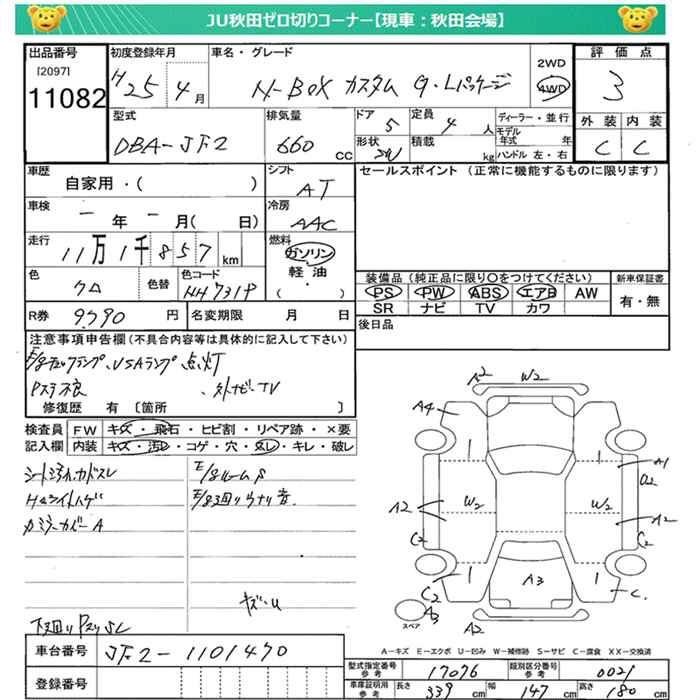 JU秋田ゼロ切りコーナー【現車：秋田会場】
出品番号 初度登録年月 車名・グレード 2WD 評価点
[2097] H25 4月 N-BOX カスタム G・Lパッケージ 4WD 3
11082
型式 排気量 ドア 定員 ディーラー・並行 外装 内装
DBA-JF2 660 CC 5 4人 モデル年式 年 C C
形状 積載 kg ハンドル 左・右
車歴 シフト セールスポイント (正常に機能するものに限ります)
自家用・( ) AT
車検 冷房
一年一月( 日) AAC
走行 燃料
11万1千857km ガソリン・軽油・( )
色 色替 色コード 装備品 (純正品に限り〇をつけてください) 新車保証書
クロ NH731P PS PW ABS エアB AW 有・無
SR ナビ TV カワ
R券 9990円 名変期限 月 日 後日品
注意事項申告欄(不具合内容等は具体的に記入して下さい)
E/gチェックランプ、VSAランプ 点灯
Pスラ不良 、外ナビ、TV
修復歴 有 〔箇所 〕
検査員 FW キズ・飛石・ヒビ割・リペア跡・×要
記入欄 内装 キズ・汚レ・コゲ・穴・スレ・キレ・破レ
E/gルームS
E/g廻りウナリ音.
カミラーカバーA
キズ・U
下廻り
A2 W2
A4
A1
A2 W2 W2 A2
C2 C2
C2 A3 C
スペア A3
A2
A-キズ E-エクボ U-凹み W-補修跡 S-サビ C-腐食 XX-交換済
車台番号 JF2-1101470
型式指定番号 参考 17076 類別区分番号 参考 0021
登録番号
車庫証明用 参考 長さ 339cm 幅 147cm 高さ 180cm